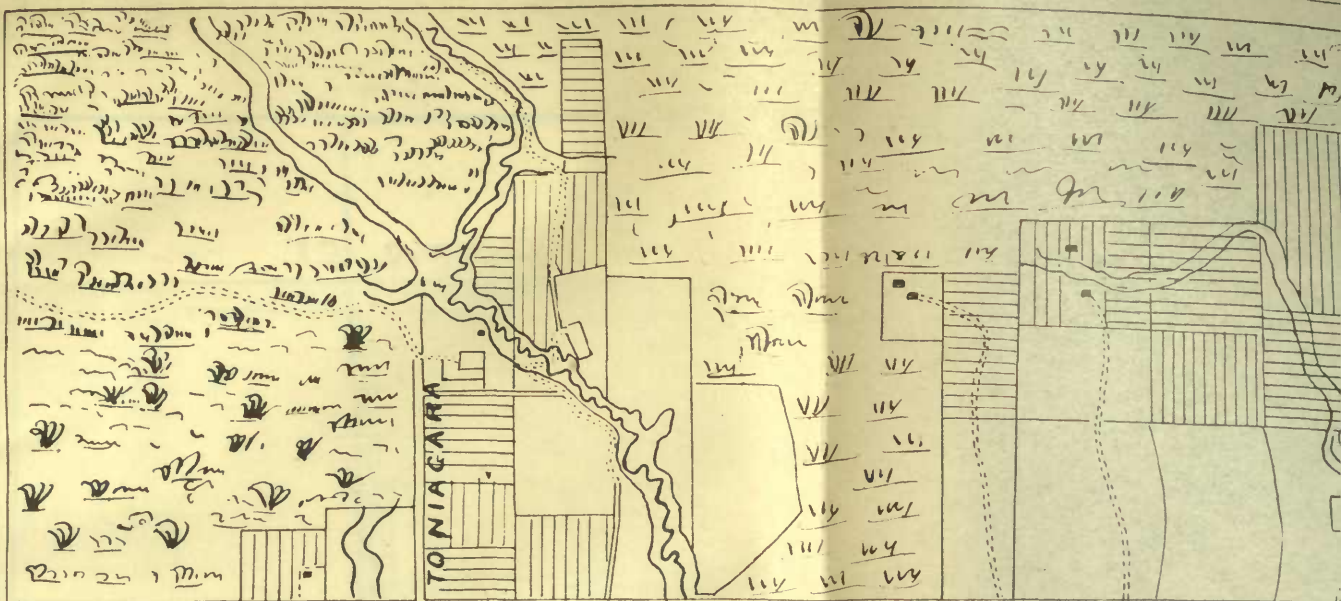 TO NIAGARA